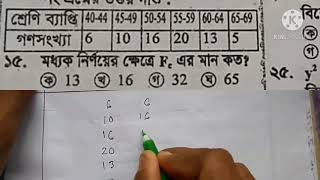 শ্রেণি ব্যাপ্তি 40-44 45-49 50-54 55-59 60-64 65-69
গণসংখ্যা 6 10 16 20 13 5
১৫. মধ্যক নির্ণয়ের ক্ষেত্রে Fc এর মান কত?
ক 13 খ 16 গ 32 ঘ 65
২৫. y²
ক
গ
6 6
10 16
16
20
13